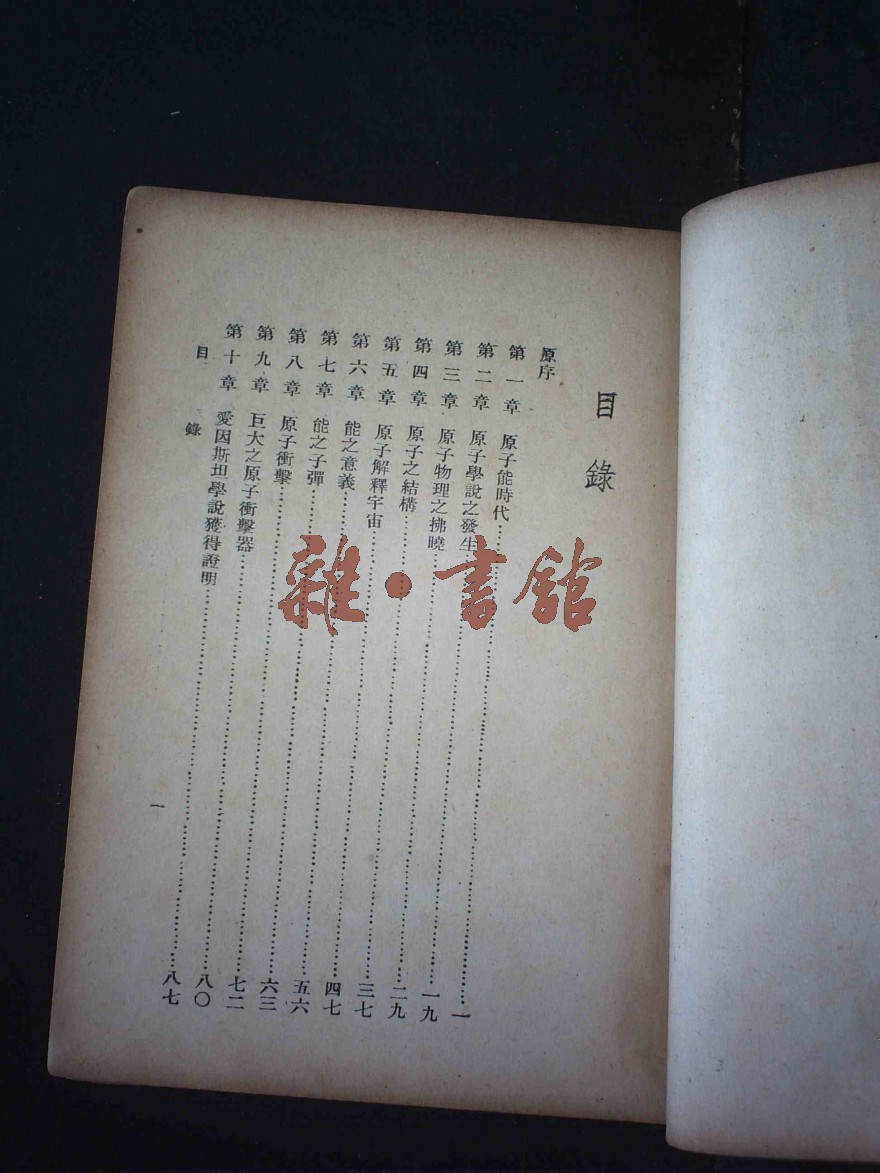 目錄
原序
第一章 原子能時代……一
第二章 原子學說之發生……一九
第三章 原子物理之拂曉……二九
第四章 原子之結構……三七
第五章 原子解釋宇宙……四七
第六章 能之意義……五六
第七章 能之子彈……六三
第八章 原子衝擊……七二
第九章 巨大之原子衝擊器……八〇
第十章 愛因斯坦學說獲得證明……八七
目錄
一
雜·書館